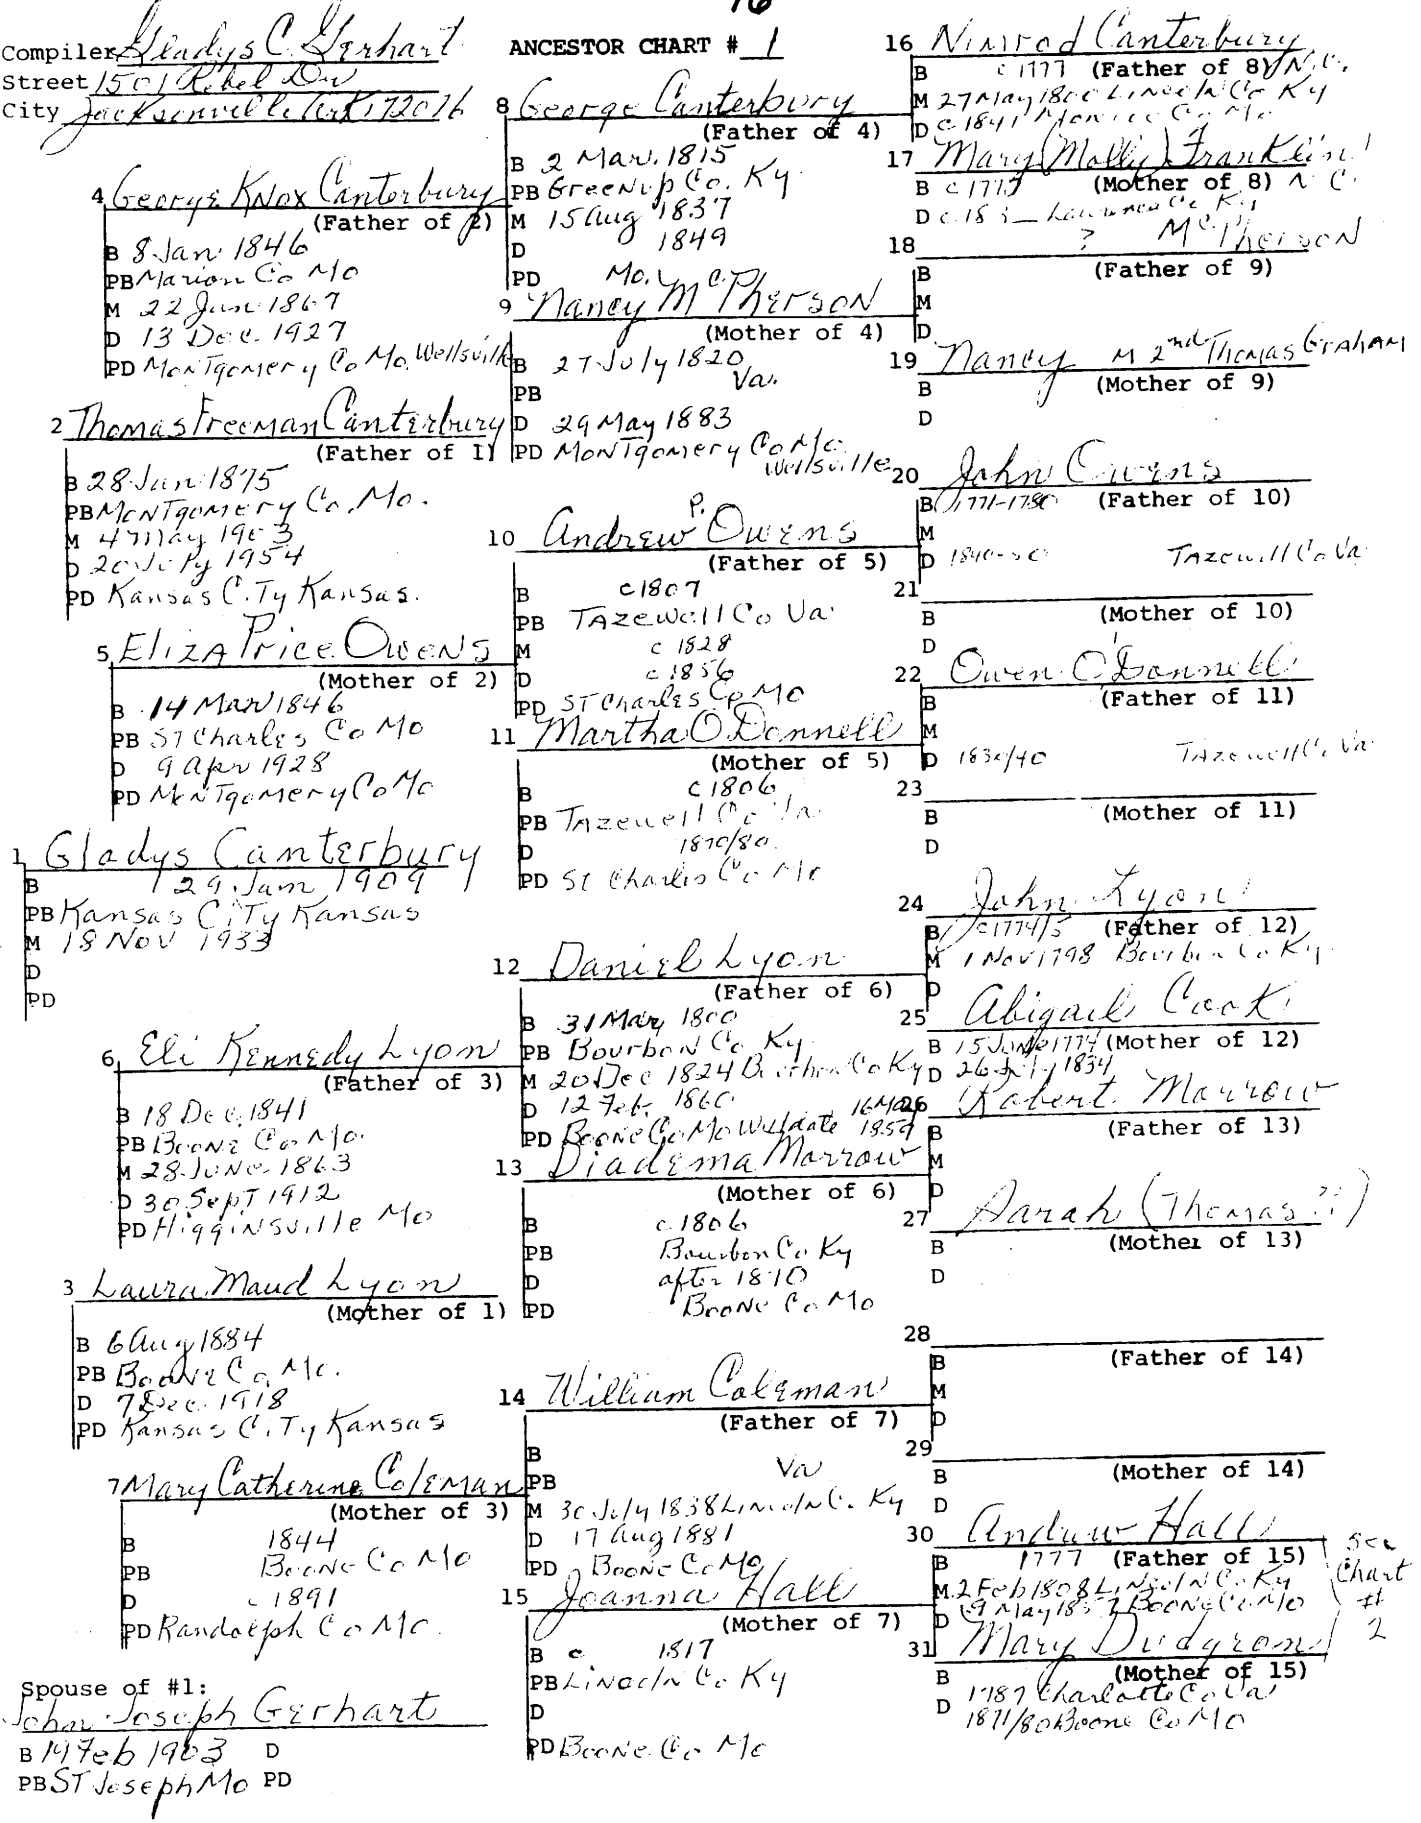 16
Compiler Gladys C. Gerhart
Street 1501 Rebel Dr
City Jacksonville Ark 72076
ANCESTOR CHART # 1
1 Gladys Canterbury
B 29 Jan 1909
PB Kansas City Kansas
M 18 Nov 1933
D
PD
2 Thomas Freeman Canterbury
(Father of 1)
B 28 Jan 1875
PB Montgomery Co, Mo.
M 4 May 1903
D 20 July 1954
PD Kansas City Kansas.
3 Laura Maud Lyon
(Mother of 1)
B 6 Aug 1884
PB Boone Co, Mo.
D 7 Dec. 1918
PD Kansas City Kansas
4 George Knox Canterbury
(Father of 2)
B 8 Jan 1846
PB Marion Co Mo
M 22 Jun 1867
D 13 Dec. 1927
PD Montgomery Co Mo. Wellsville
5 Eliza Price Owens
(Mother of 2)
B 14 Mar 1846
PB St Charles Co Mo
D 9 Apr 1928
PD Montgomery Co Mo
6 Eli Kennedy Lyon
(Father of 3)
B 18 Dec. 1841
PB Boone Co Mo.
M 28 June 1863
D 30 Sept 1912
PD Higginsville Mo
7 Mary Catherine Coleman
(Mother of 3)
B 1844
PB Boone Co Mo
D c 1891
PD Randolph Co Mo.
Spouse of #1:
John Joseph Gerhart
B 14 Feb 1903 D
PB St Joseph Mo PD
8 George Canterbury
(Father of 4)
B 2 Mar. 1815
PB Greenup Co. Ky
M 15 Aug 1837
D 1849
PD Mo.
9 Nancy McPherson
(Mother of 4)
B 27 July 1820
PB Va.
D 29 May 1883
PD Montgomery Co Mo.
Wellsville
10 Andrew P. Owens
(Father of 5)
B c1807
PB Tazewell Co Va
M c 1828
D c 1856
PD St Charles Co Mo
11 Martha O Donnell
(Mother of 5)
B c1806
PB Tazewell Co Va
D 1870/80
PD St Charles Co Mo
12 Daniel Lyon
(Father of 6)
B 31 May 1800
PB Bourbon Co Ky
M 20 Dec 1824 Bourbon Co Ky
D 12 Feb. 1860
PD Boone Co Mo Will date 16 May 1859
13 Diadema Morrow
(Mother of 6)
B c 1806
PB Bourbon Co Ky
D after 1870
PD Boone Co Mo
14 William Coleman
(Father of 7)
B
PB Va
M 30 July 1838 Lincoln Co. Ky
D 17 Aug 1881
PD Boone Co Mo
15 Joanna Hall
(Mother of 7)
B c 1817
PB Lincoln Co Ky
D
PD Boone Co Mo
16 Nimrod Canterbury
(Father of 8)
B c 1777 N.C.
M 27 May 1800 Lincoln Co Ky
D c 1841 Monroe Co Mo
17 Mary (Molly) Franklin
(Mother of 8)
B c 1777 N C.
D c 183_ Lawrence Co Ky
18 ? McPherson
(Father of 9)
B
M
D
19 Nancy M 2nd Thomas Graham
(Mother of 9)
B
D
20 John Owens
(Father of 10)
B 1771-1780
M
D 1840-50 Tazewell Co Va
21
(Mother of 10)
B
D
22 Owen O'Donnell
(Father of 11)
B
M
D 1830/40 Tazewell Co Va
23
(Mother of 11)
B
D
24 John Lyon
(Father of 12)
B c1774/5
M 1 Nov 1798 Bourbon Co Ky
D
25 Abigail Cook
(Mother of 12)
B 15 June 1774
D 26 July 1834
26 Robert Morrow
(Father of 13)
B
M
D
27 Sarah (Thomas ??)
(Mother of 13)
B
D
28
(Father of 14)
B
M
D
29
(Mother of 14)
B
D
30 Andrew Hall
(Father of 15)
B 1777
M 2 Feb 1808 Lincoln Co. Ky
D 9 May 1857 Boone Co Mo
31 Mary Dudgeon
(Mother of 15)
B 1787 Charlotte Co Va
D 1871/80 Boone Co Mo
See
Chart
#
2